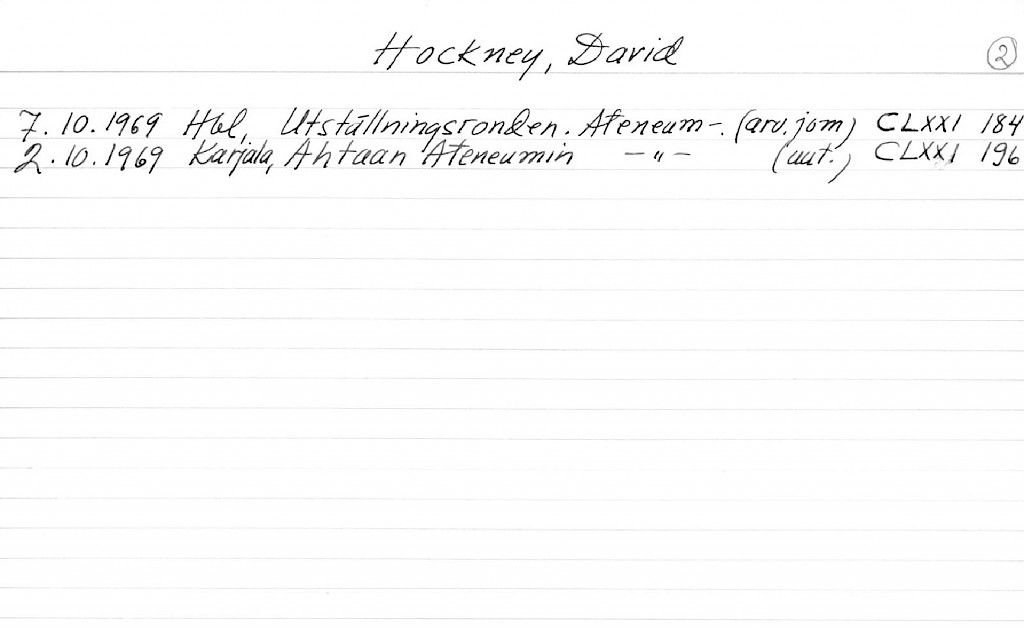 Hockney, David 2
7.10.1969 Hbl, Utställningsronden. Ateneum -. (arv. jom) CLXXI 184
2.10.1969 Karjala, Ahtaan Ateneumin -"- (uut.) CLXXI 196